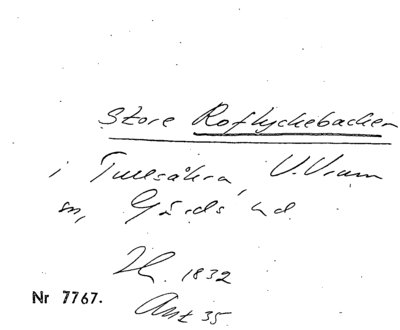 Store Roflyckebacken
i Tullsåkra, V. Vram
sn, Gärds hd.
1832
Nr 7767.
Ant 35